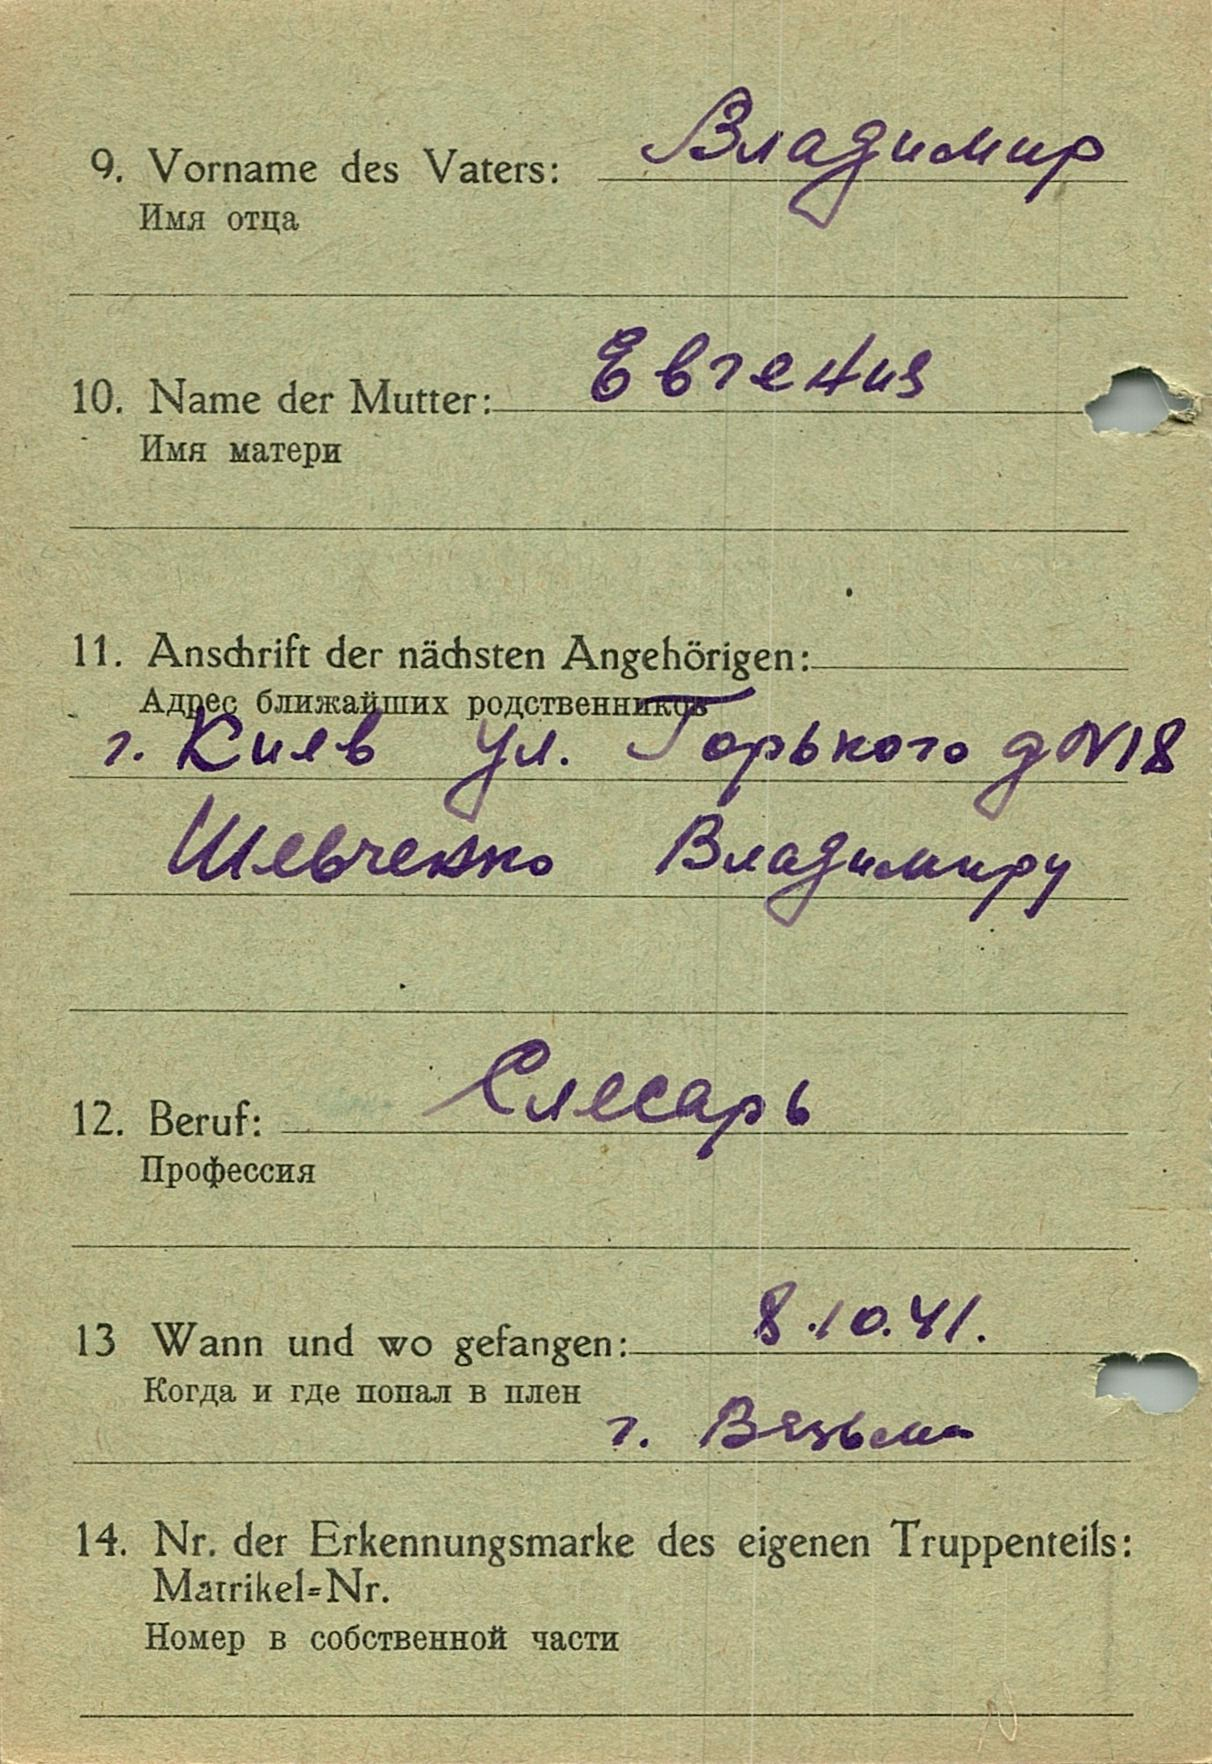 9. Vorname des Vaters: Владимир
Имя отца
10. Name der Mutter: Евгения
Имя матери
11. Anschrift der nächsten Angehörigen:
Адрес ближайших родственников
г. Киев ул. Горького д N18
Шевченко Владимиру
12. Beruf: Слесарь
Профессия
13 Wann und wo gefangen: 8.10.41.
Когда и где попал в плен
г. Вязьма
14. Nr. der Erkennungsmarke des eigenen Truppenteils:
Matrikel=Nr.
Номер в собственной части